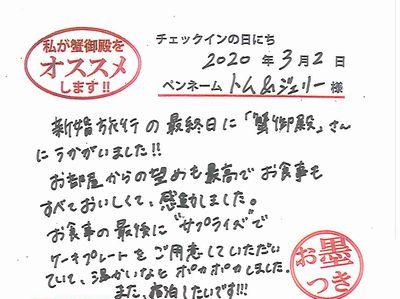 私が蟹御殿を
オススメ
します!!
チェックインの日にち
2020 年 3 月 2 日
ペンネーム トム&ジェリー 様
新婚旅行の最終日に「蟹御殿」さん
にうかがいました!!
お部屋からの望めも最高でお食事も
すべておいしくて、感動しました。
お食事の最後に"サプライズ"で
ケーキプレートをご用意していただい
ていて、温かいなとポカポカしました。
また、宿泊したいです!!!
お墨
つき